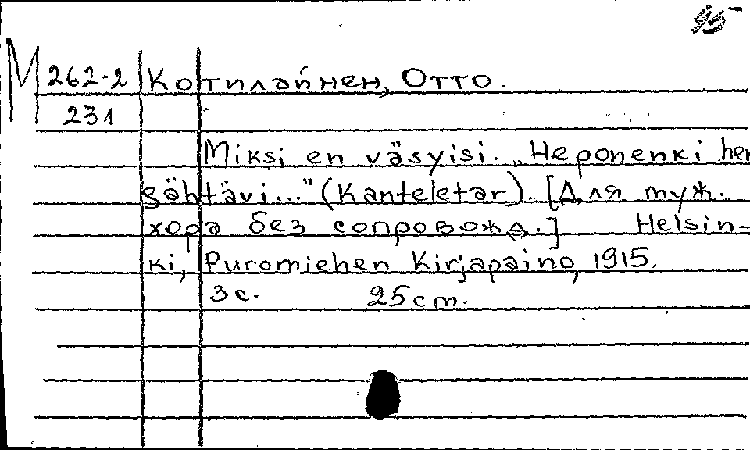 95
М 262-2 Котилайнен, Отто.
231
Miksi en väsyisi. „Heponenki hen
gähtävi..." (Kanteletar). [Для муж.
хора без сопровожд.] Helsin-
ki, Puromiehen Kirjapaino, 1915.
3 с. 25 cm.